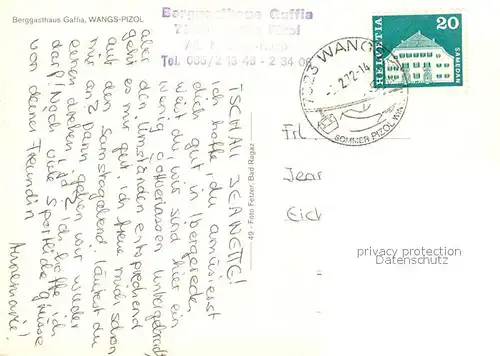 Berggasthaus Gaffia, WANGS-PIZOL
Berggasthaus Gaffia
Tel. 085/2 13 46 - 2 34 06
HELVETIA
20
SAMEDAN
7323 WANGS
SOMMER-PIZOL-WINTER
49 - Foto Fetzer, Bad Ragaz
TSCHALI JEANETTE!
Ich hoffe, du amüsierst
dich gut in Ibergereden
Weist du, wir sind hier ein
wenig gottverlassen untergebracht,
aber den Umständen entsprechend
geht es mir gut. Ich freue mich schon
auf den Samstagabend läutest du
mir an? Dann gehen wir wieder
einen drehen, gäll? Ich hoffe ich
darf! Noch viele Sportliche Grüsse
von deiner Freundin
Annemarie!
Frl.
Jean
Eich
privacy protection
DATENSCHUTZ